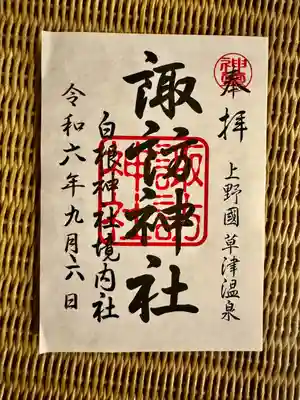 奉拝
上野國 草津温泉
諏訪神社
諏訪神社
白根神社境内社
令和六年九月六日